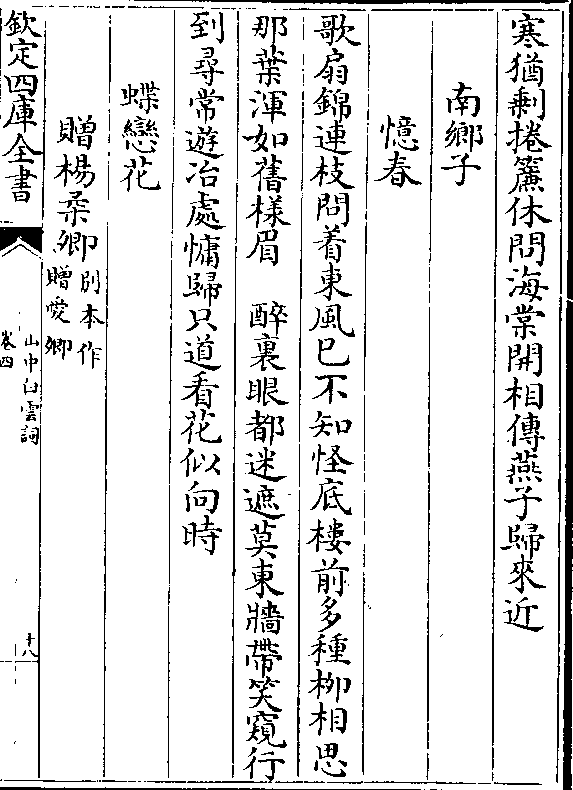 寒猶剰捲簾休問海棠開相傳燕子歸來近
南鄉子
憶春
歌扇錦連枝問着東風已不知怪底樓前多種栁相思
那葉渾如舊様眉　醉裏眼都迷遮莫東牆帶笑窺行
到尋常遊冶處慵歸只道看花似向時
蝶戀花
贈楊柔卿别本作贈愛卿
欽定四庫全書
山中白雲詞
卷四
十八